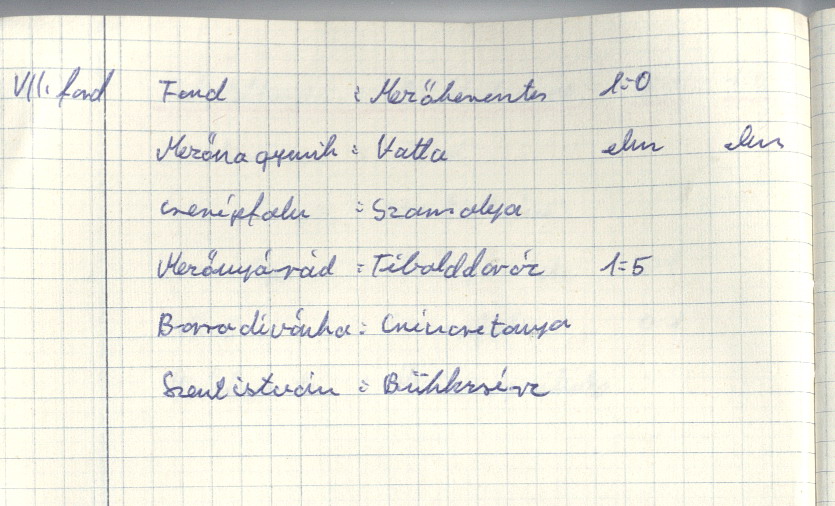 VII. ford Emőd : Mezőkeresztes 1:0
Mezőnagymih : Vatta elm elm
Cserépfalu : Szomolya
Mezőnyárád : Tibolddaróc 1:5
Borsodivánka : Csincsetanya
Szentistván : Bükkzsérc